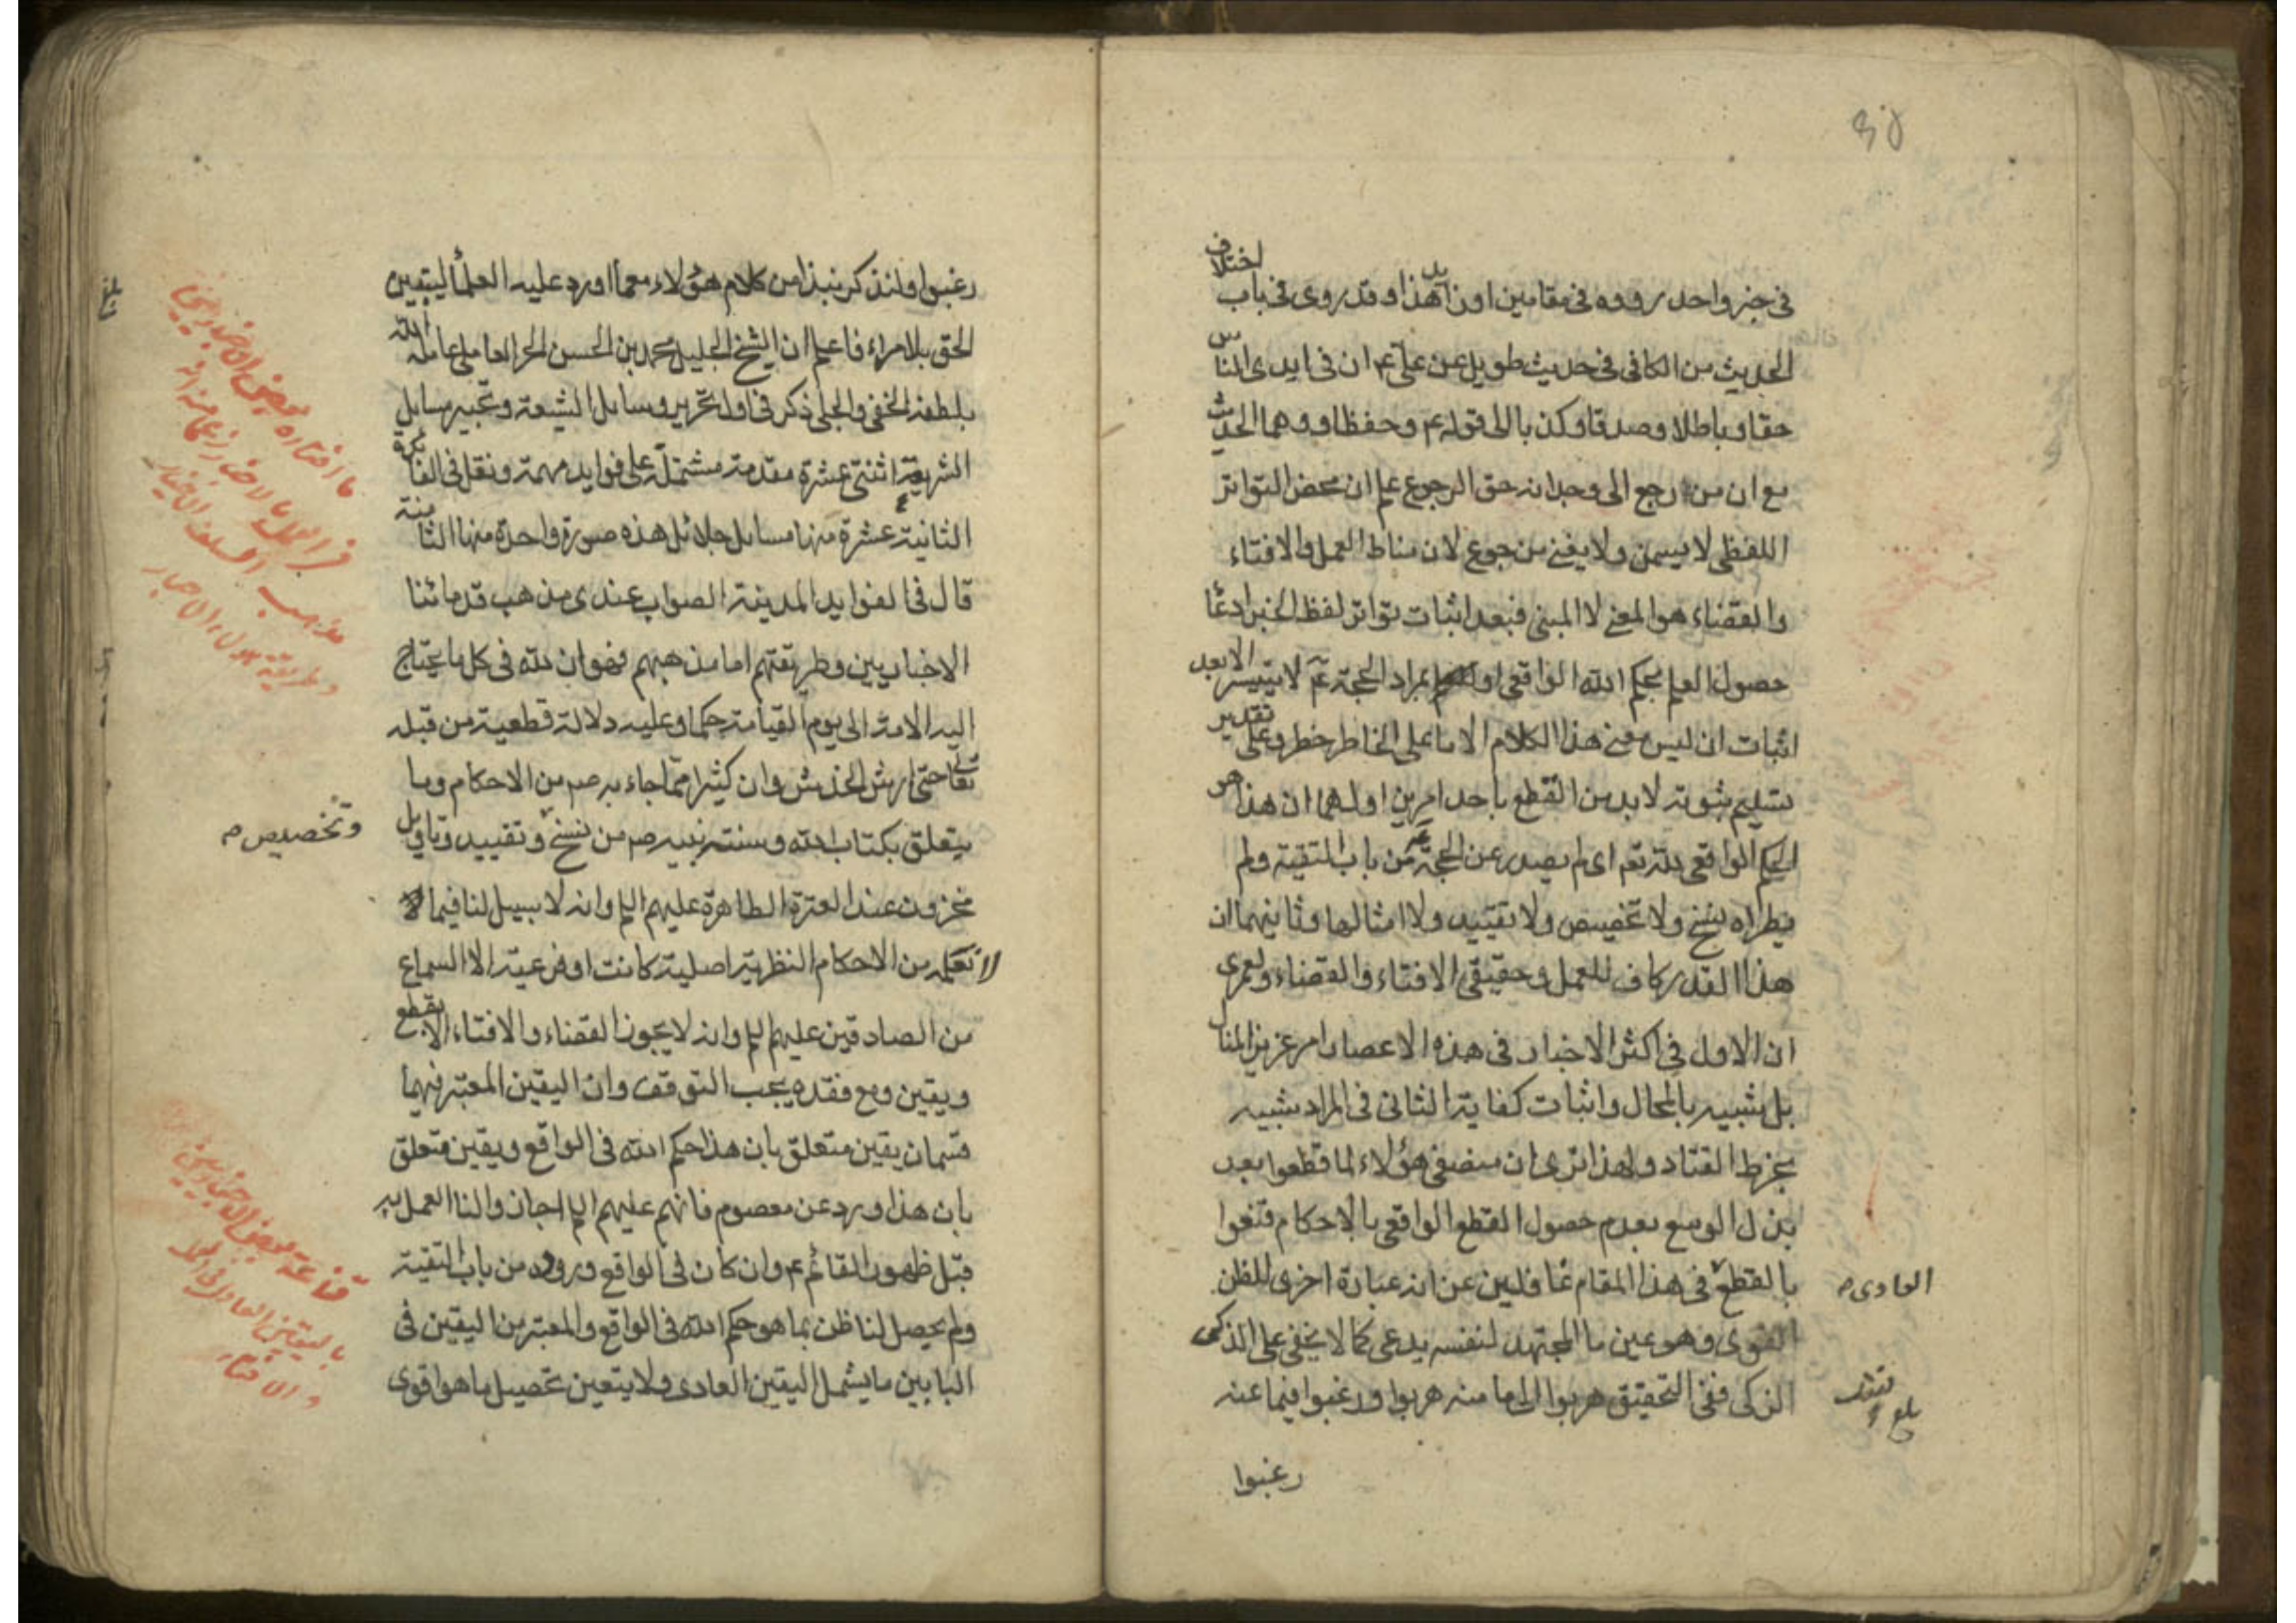 في خبر واحد رووه في مقامين او ن هذا وقد روى في باب اختلاف
الحديث من الكافي في حديث طويل عن علي ع ان في ايدي الناس
حقا وباطلا وصدقا وكذبا الى قوله ع وحفظا ووهما الحديث
مع ان من رجع الى وجدانه حق الرجوع علم ان محض التواتر
اللفظي لا يسمن ولا يغني من جوع لان مناط العمل والافتاء
والقضاء هو المعنى لا المبنى فبعد اثبات تواتر لفظ الخبر ادعا
حصول العلم بحكم الله الواقعي او بمراد الحجة ع لا يتيسر الا بعد
اثبات ان ليس معنى هذا الكلام الا ما على الخاطر خطر وعلى تقدير
تسليم ثبوته لا بد من القطع باحد امرين اولهما ان هذا هو
الحكم الواقعي لله تعم اى لم يصدر عن الحجة ع من باب التقية ولم
يطراه نسخ ولا تخصيص ولا تقييد ولا امثالها وثانيهما ان
هذا القدر كاف للعمل وحقيقي الافتاء والقضاء ولعمرى
ان الاول في اكثر الاخبار في هذه الاعصار امر عزيز المنال
بل شبيه بالمحال واثبات كفاية الثاني في المراد شبيه
بخرط القتاد ولهذا ترى ان منصفي هؤلاء لما قطعوا بعد
بذل الوسع بعدم حصول القطع الواقعي بالاحكام قنعوا
بالقطع في هذا المقام غافلين عن انه عبارة اخرى للظن
العادى م
القوى وهو عين ما المجتهد لنفسه يدعى كما لا يخفى على الذكى
الزكى ففي التحقيق هربوا الى ما منه هربوا ورغبوا فيما عنه
بلغ
رغبوا
رغبوا ولنذكر نبذا من كلام هؤلاء مع ما اورد عليه العلماء ليتبين
الحق بلا مراء فاعلم ان الشيخ الجليل محمد بن الحسن الحر العاملي عامله الله
بلطفه الخفي والجلي ذكر في اول تحرير وسائل الشيعة وتحبير مسايل
الشريعة اثنتي عشرة مقدمة مشتملة على فوايد مهمة ونقل في الفائدة
الثانية عشرة منها مسايل جلائل هذه صورة واحدة منها الثامنة
قال في الفوايد المدينة الصواب عندى مذهب قدمائنا
الاخباريين وطريقتهم اما مذهبهم فهو ان لله في كل ما يحتاج
اليه الامة الى يوم القيامة حكما وعليه دلالة قطعية من قبله
تعالى حتى ارش الخدش وان كثيرا مما جاء به صم من الاحكام وما
يتعلق بكتاب الله وسنة نبيه صم من نسخ وتقييد وتاويل
وتخصيص م
مخزون عند العترة الطاهرة عليهم السلم وانه لا سبيل لنا فيما
لا نعلمه من الاحكام النظرية اصلية كانت او فرعية الا السماع
من الصادقين عليهم السلم وانه لا يجوز القضاء والافتاء الا بقطع
ويقين ومع فقده يجب التوقف وان اليقين المعتبر فيهما
قسمان يقين متعلق بان هذا حكم الله في الواقع ويقين متعلق
بان هذا ورد عن معصوم فانهم عليهم السلم اجازوا لنا العمل به
قبل ظهور القائم ع وان كان في الواقع وروده من باب التقية
ولم يحصل لنا ظن بما هو حكم الله في الواقع والمعتبر من اليقين في
البابين ما يشمل اليقين العادى ولا يتعين تحصيل ما هو اقوى
بلغ
ما اختاره بعض الاخباريين
قناعة بعض الاخباريين
باليقين العادى في العمل
والافتاء